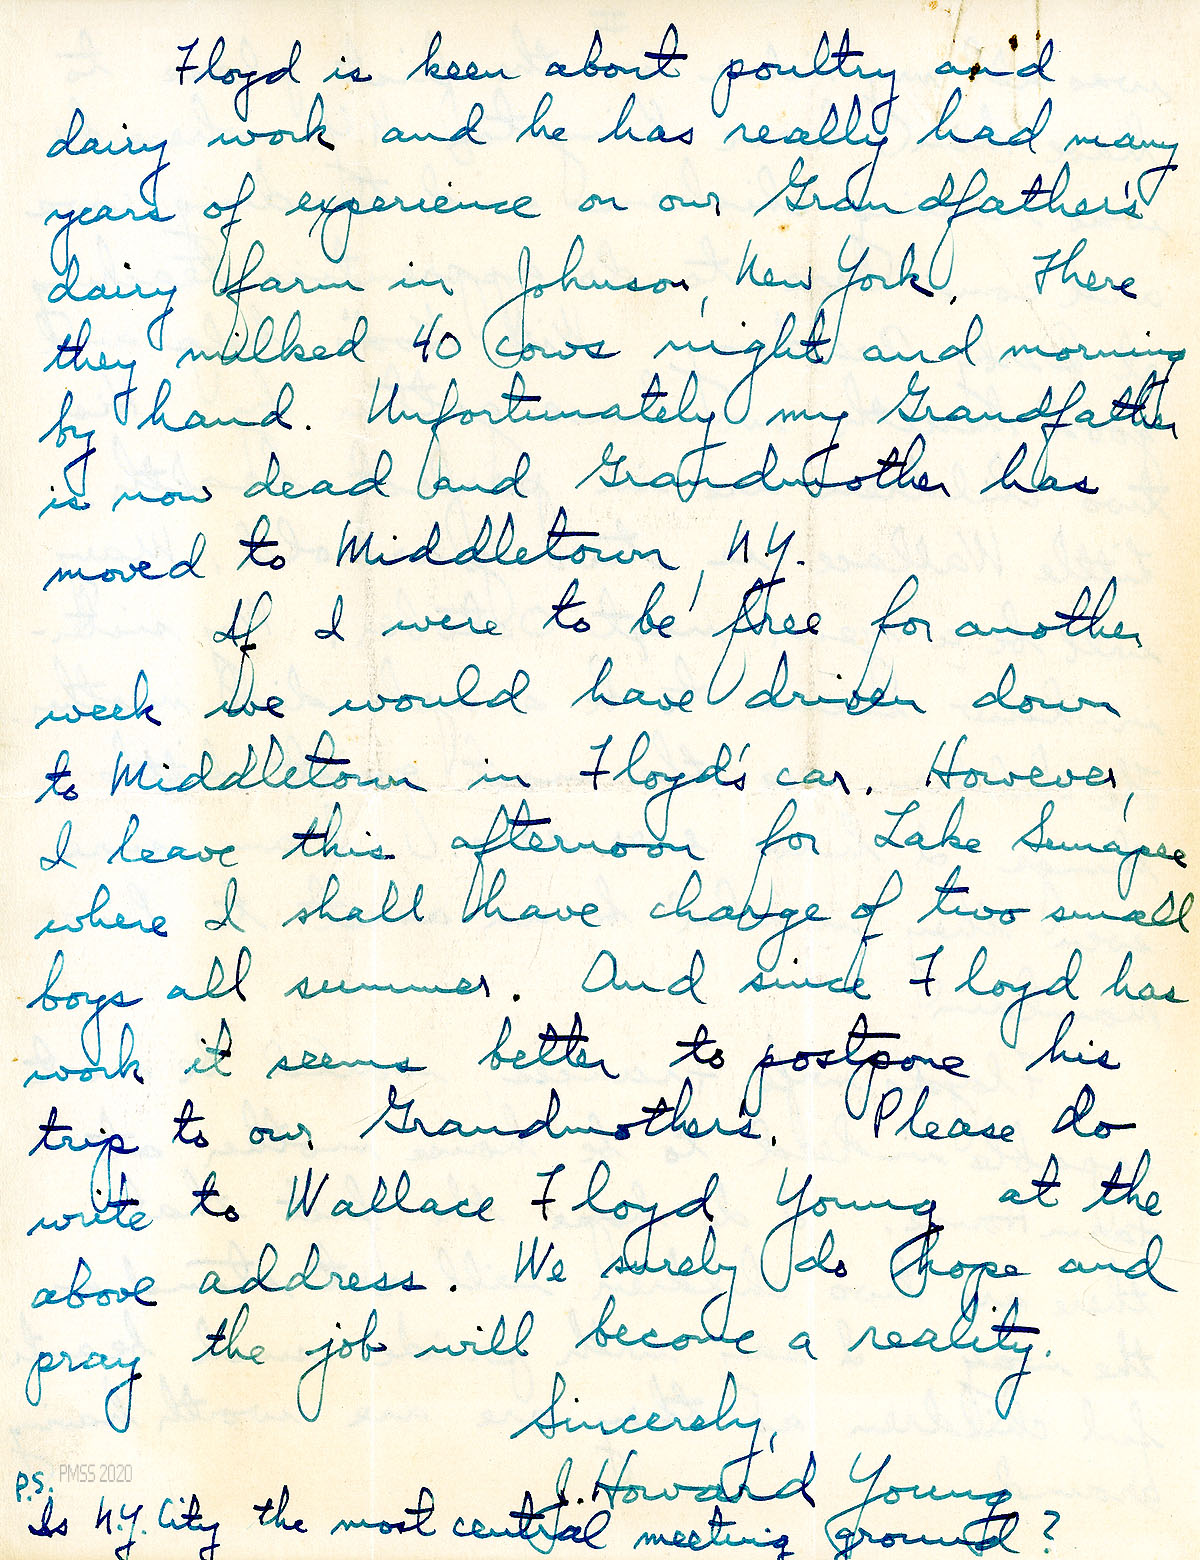 Floyd is keen about poultry and
dairy work and he has really had many
years of experience on our Grandfather's
dairy farm in Johnson, New York. There
they milked 40 cows night and morning
by hand. Unfortunately my Grandfather
is now dead and Grandmother has
moved to Middletown, N.Y.
If I were to be free for another
week we would have driven down
to Middletown in Floyd's car. However,
I leave this afternoon for Lake Sunapee
where I shall have charge of two small
boys all summer. And since Floyd has
work it seems better to postpone his
trip to our Grandmother's. Please do
write to Wallace Floyd Young at the
above address. We surely do hope and
pray the job will become a reality.
Sincerely,
J. Howard Young
P.S. PMSS 2020
Is N.Y. City the most central meeting ground?